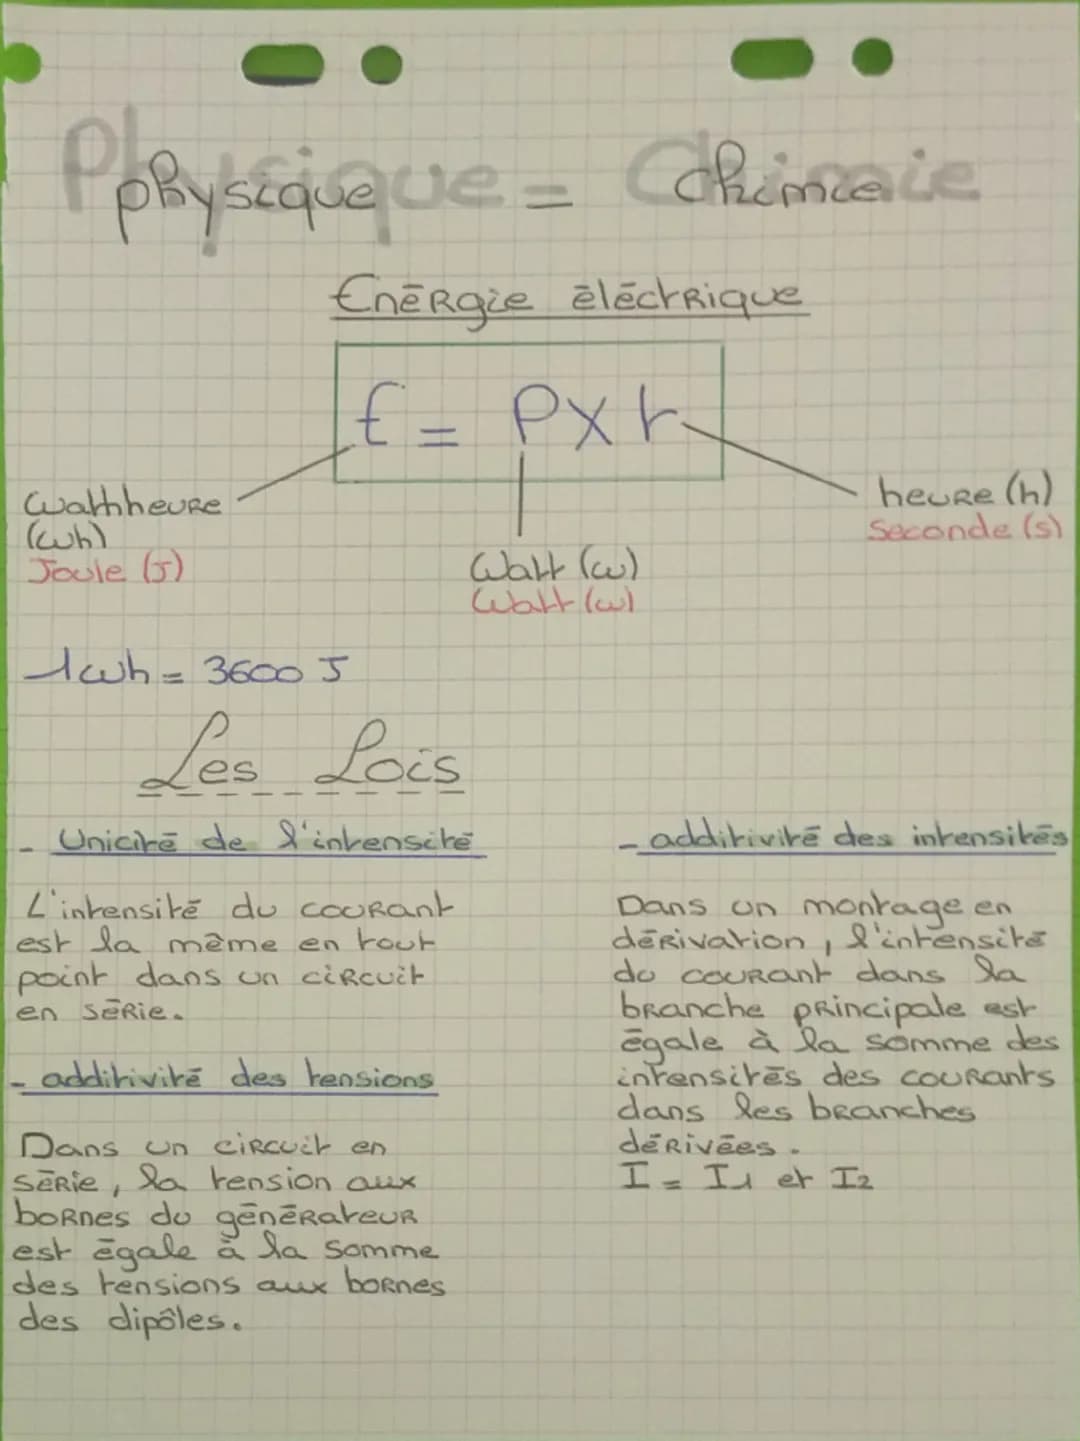 Physique = Chimie
Énergie électrique
E = P x t
Wattheure
(wh)
Joule (J)
Watt (w)
Watt (w)
heure (h)
Seconde (s)
1wh = 3600 J
Les Lois
- Unicité de l'intensité
L'intensité du courant
est la même en tout
point dans un circuit
en série.
- additivité des tensions
Dans un circuit en
série, la tension aux
bornes du générateur
est égale à la somme
des tensions aux bornes
des dipôles.
- additivité des intensités
Dans un montage en
dérivation, l'intensité
du courant dans la
branche principale est
égale à la somme des
intensités des courants
dans les branches
dérivées.
I = I1 et I2